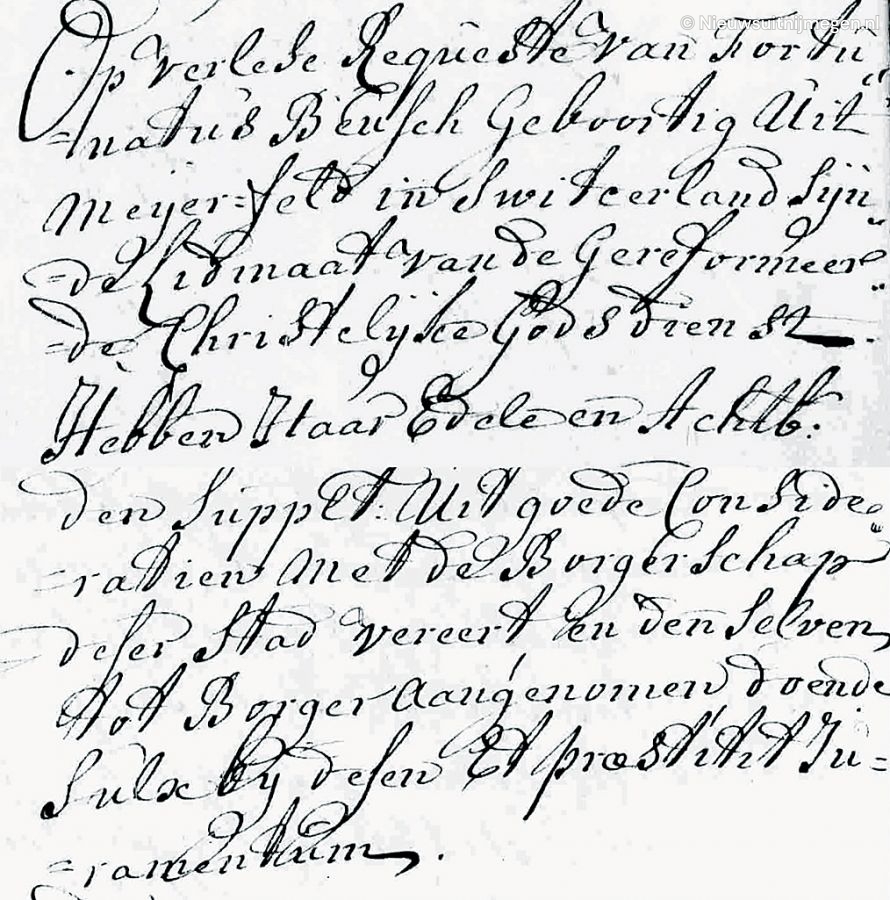 © Nieuwsuitnijmegen.nl
Op verlese Requeste van Fortu
=natus Beusch Geboortig Uit
Meijer=feld in Switcerland Sijn
=de Lidmaat van de Gereformeer
=de Christelijke Godsdienst.
Hebben Haar Edele en Achtb:
den Supplt: Uit goede Conside
=ratien Met de Borgerschap
deser Stad vereert en den Selven
tot Borger aangenomen doende
Sulx by desen Et præstitit Ju=
=ramentum.